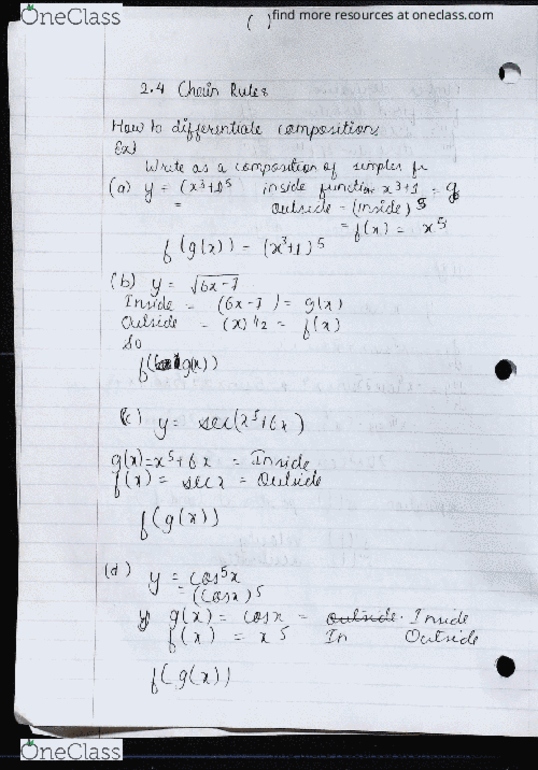 OneClass
( ) find more resources at oneclass.com
2.4 Chain Rules
How to differentiate compositions
Ex)
Write as a composition of simpler fn
(a) y = (x³+1)⁵ inside function x³+1 = g
= outside - (inside)⁵
= f(x) = x⁵
f(g(x)) - (x³+1)⁵
(b) y = √6x-7
Inside - (6x-7) = g(x)
Outside - (x)^1/2 = f(x)
So
f(g(x))
(c) y = sec(x⁵+6x)
g(x)=x⁵+6x = Inside
f(x) = secx = Outside
f(g(x))
(d) y = cos⁵x
= (cosx)⁵
y g(x) = cosx = outside. Inside
f(x) = x⁵ In Outside
f(g(x))
OneClass